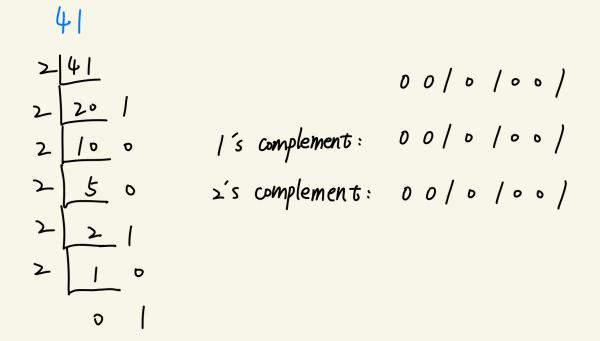 41
2 41
2 20 1
2 10 0
2 5 0
2 2 1
2 1 0
0 1
0 0 1 0 1 0 0 1
1's complement: 0 0 1 0 1 0 0 1
2's complement: 0 0 1 0 1 0 0 1